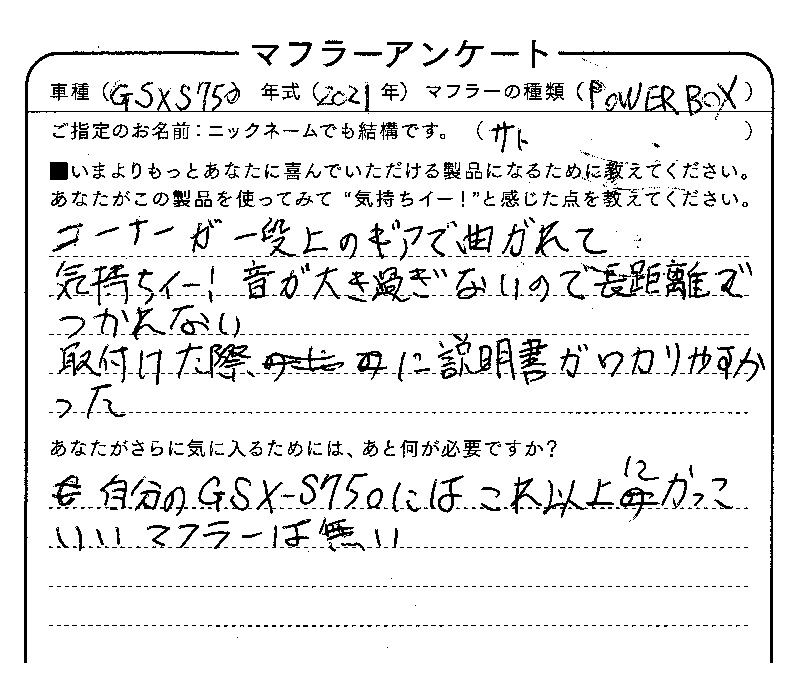 マフラーアンケート
車種（GSXS750 年式（2021年） マフラーの種類（POWERBOX）
ご指定のお名前：ニックネームでも結構です。（サト ）
■いまよりもっとあなたに喜んでいただける製品になるために教えてください。
あなたがこの製品を使ってみて“気持ちイー！”と感じた点を教えてください。
コーナーが一段上のギアで曲がれて
気持ちイー！音が大き過ぎないので長距離で
つかれない
取付けた際、に説明書がワカリやすか
った
あなたがさらに気に入るためには、あと何が必要ですか？
自分のGSX-S750にはこれ以上にかっこ
いいマフラーは無い